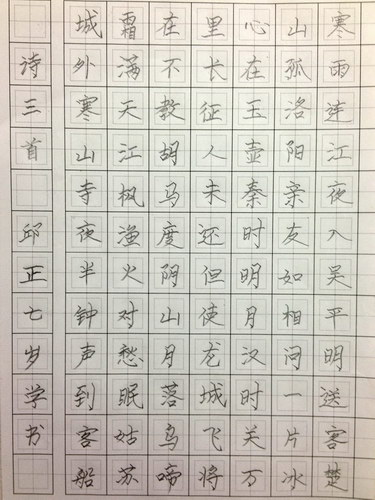 寒雨连江夜入吴平明送客楚
山孤洛阳亲友如相问一片冰
心在玉壶秦时明月汉时关万
里长征人未还但使龙城飞将
在不教胡马度阴山月落乌啼
霜满天江枫渔火对愁眠姑苏
城外寒山寺夜半钟声到客船
诗三首 邱正七岁学书